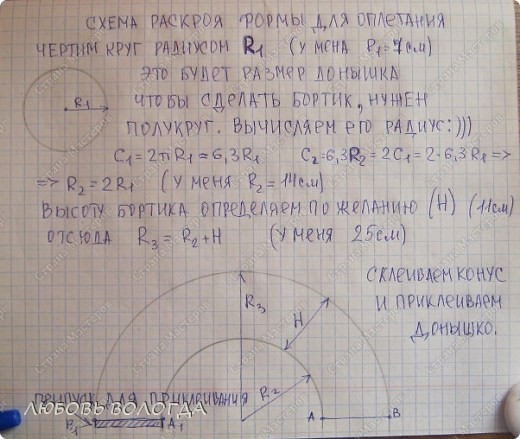 СХЕМА РАСКРОЯ ФОРМЫ ДЛЯ ОПЛЕТАНИЯ
ЧЕРТИМ КРУГ РАДИУСОМ R₁ (У МЕНЯ R₁=7см)
ЭТО БУДЕТ РАЗМЕР ДОНЫШКА
R₁
ЧТОБЫ СДЕЛАТЬ БОРТИК, НУЖЕН
ПОЛУКРУГ. ВЫЧИСЛЯЕМ ЕГО РАДИУС:)))
C₁=2πR₁≈6,3R₁ C₂=6,3R₂=2C₁=2·6,3R₁=>
=> R₂=2R₁ (У МЕНЯ R₂=14см)
ВЫСОТУ БОРТИКА ОПРЕДЕЛЯЕМ ПО ЖЕЛАНИЮ (H) (11см)
ОТСЮДА R₃=R₂+H (У МЕНЯ 25см)
СКЛЕИВАЕМ КОНУС
И ПРИКЛЕИВАЕМ
ДОНЫШКО.
R₃
H
R₂
ПРИПУСК ДЛЯ ПРИКЛЕИВАНИЯ
ЛЮБОВЬ ВОЛОГДА
B₁ A₁ A B